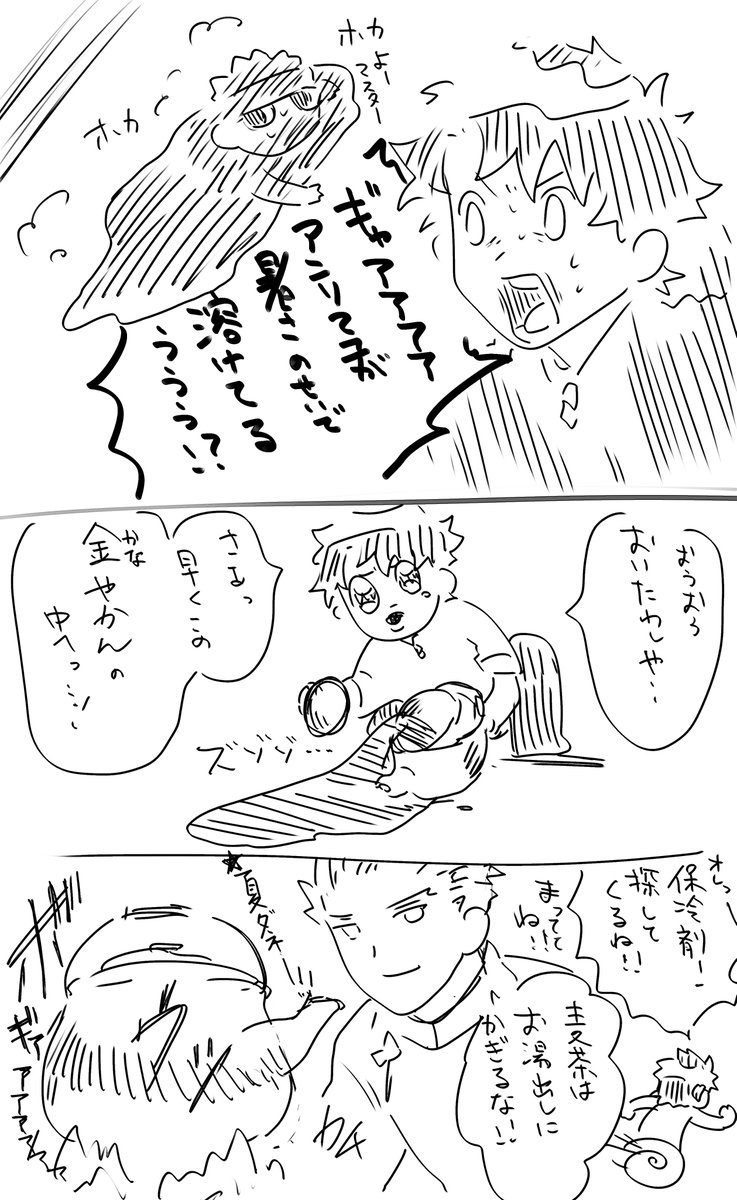 ホカ
よー
マスター
ホカ
ギャアアアア
アンリてゃが
暑さのせいで
溶けてる
ううう!?
おうおう
おいたわしや…
さぁっ
早くこの
金やかんの
かな
中へっ…!!
ズゾゾ…
オレっ
保冷剤!
探して
くるね!!
まってて
ね!!
麦茶は
お湯出しに
かぎるな!!
★夏ダネー!!
カチ
ギァァアアア